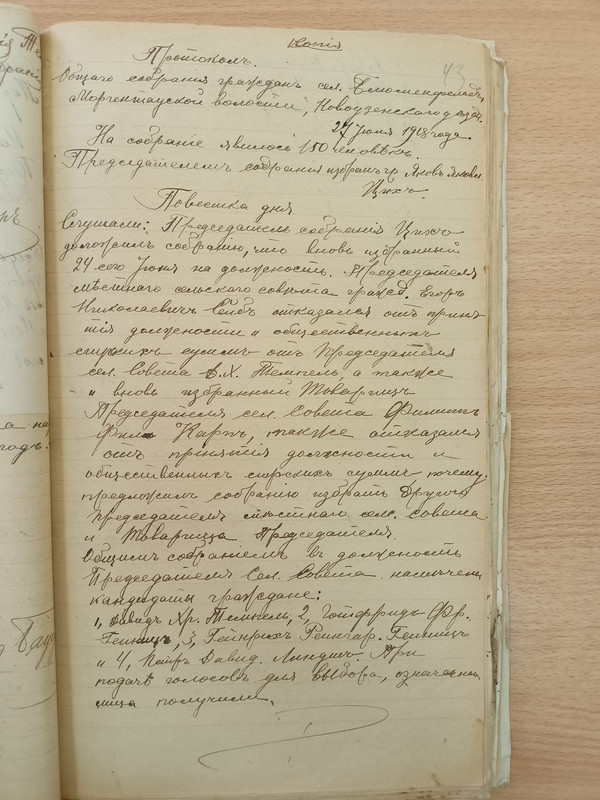 Копія
43
Протоколъ.
Общаго собранія гражданъ сел. Блюменфельдъ,
Моргентауской волости, Новоузенского уѣзда.
27 Іюня 1918 года.
На собраніе явилось 150 человѣкъ.
Председателемъ собранія избранъ гр. Яковъ Яковл.
Цихъ.
Повестка дня
Слушали: Председатель собранія Цихъ
доложилъ собранію, что вновь избранный
24 сего Іюня на должность Председателя
мѣстнаго сельскаго совѣта гражд. Егоръ
Николаевичъ отказался отъ приня-
тія должности и общественныхъ
суммъ отъ Председателя
сел. Совета Д. Х. Темпель, а также
и вновь избранный Товарищъ
Председателя сел. Совета Филиппъ
также отказался
отъ принятія должности и
общественныхъ суммъ почему
предложилъ собранію избрать другого
Председателя мѣстнаго сел. Совета
и Товарища Председателя.
Общимъ собраніемъ въ должность
Председателя Сел. Совета намечены
кандидаты граждане:
1, Давидъ Хр. Темпель, 2, Готфридъ Фр.
3, Гейнрихъ
и 4, Давид. При
подачѣ голосовъ для выбора, означенныя
лица получили,